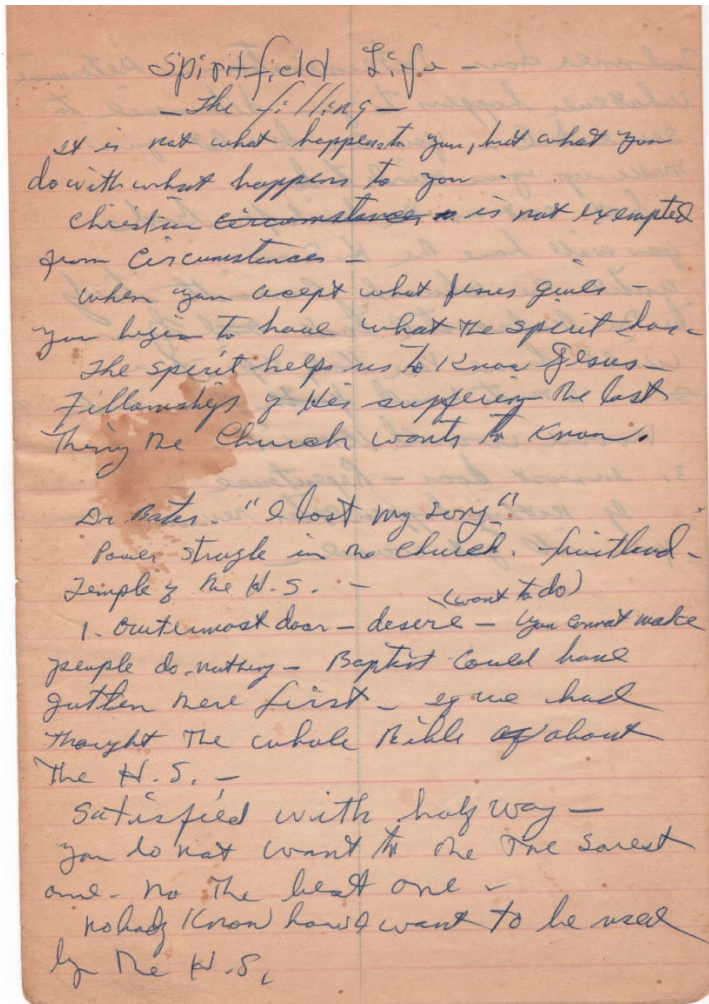 Spiritfield Life -
- The filling -
It is not what happens to you, but what you
do with what happens to you.
Christian circumstances is not exempted
from Circumstances -
When you acept what Jesus gives -
you begin to have what the spirit has -
The spirit helps us to Know Jesus -
Fillowship of His suffering - the last
thing the Church wants to Know.
Dr Bates. "I lost my song"
Power strugle in the Church.
Temple of the H.S. -
(want to do)
1. Outermost door - desire - you connot make
people do nothing - Baptist could have
gotten there first - if we had
thought the whole Bible about
the H.S. -
Satisfied with half way -
you do not want to the
one - no the best one -
nobody Know how I want to be used
by the H.S.